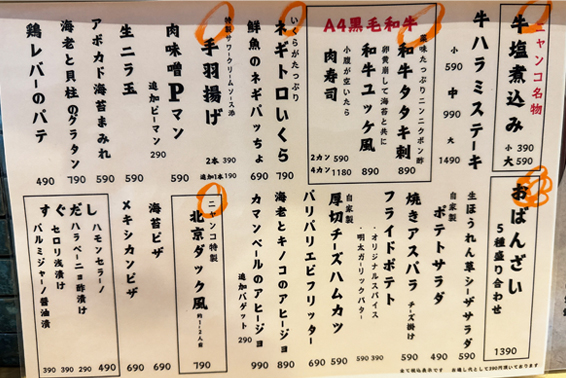 ニャンコ名物
牛塩煮込み
小 390
大 590
牛ハラミステーキ
小 590
中 990
大 1490
A4黒毛和牛
薬味たっぷりニンニクポン酢
和牛タタキ刺
890
卵黄崩して海苔と共に
和牛ユッケ風
890
小腹が空いたら
肉寿司
2カン 590
4カン 1180
いくらがたっぷり
ネギトロいくら
790
鮮魚のネギバッちょ
690
特製サワークリームソース添
手羽揚げ
2本 390
追加1本 190
肉味噌Pマン
590
追加ピーマン
290
生ニラ玉
550
アボカド海苔まみれ
590
海老と貝柱のグラタン
790
鶏レバーのパテ
490
おばんざい
5種盛り合わせ
1390
生ほうれん草シーザサラダ
590
自家製
ポテトサラダ
490
焼きアスパラ チーズ掛け
590
フライドポテト
・オリジナルスパイス
390
・明太ガーリックバター
590
自家製
厚切チーズハムカツ
590
パリパリエビフリッター
690
海老とキノコのアヒージョ
890
カマンベールのアヒージョ
990
追加バゲット
290
ニャンコ特製
北京ダック風
約1~2人前
790
海苔ピザ
590
メキシカンピザ
690
すぐだし
ハモンセラーノ
490
ハラペーニョ酢漬け
290
セロリ浅漬け
390
パルミジャーノ醤油漬
390
全て税込表示です お通し代として390円頂いております